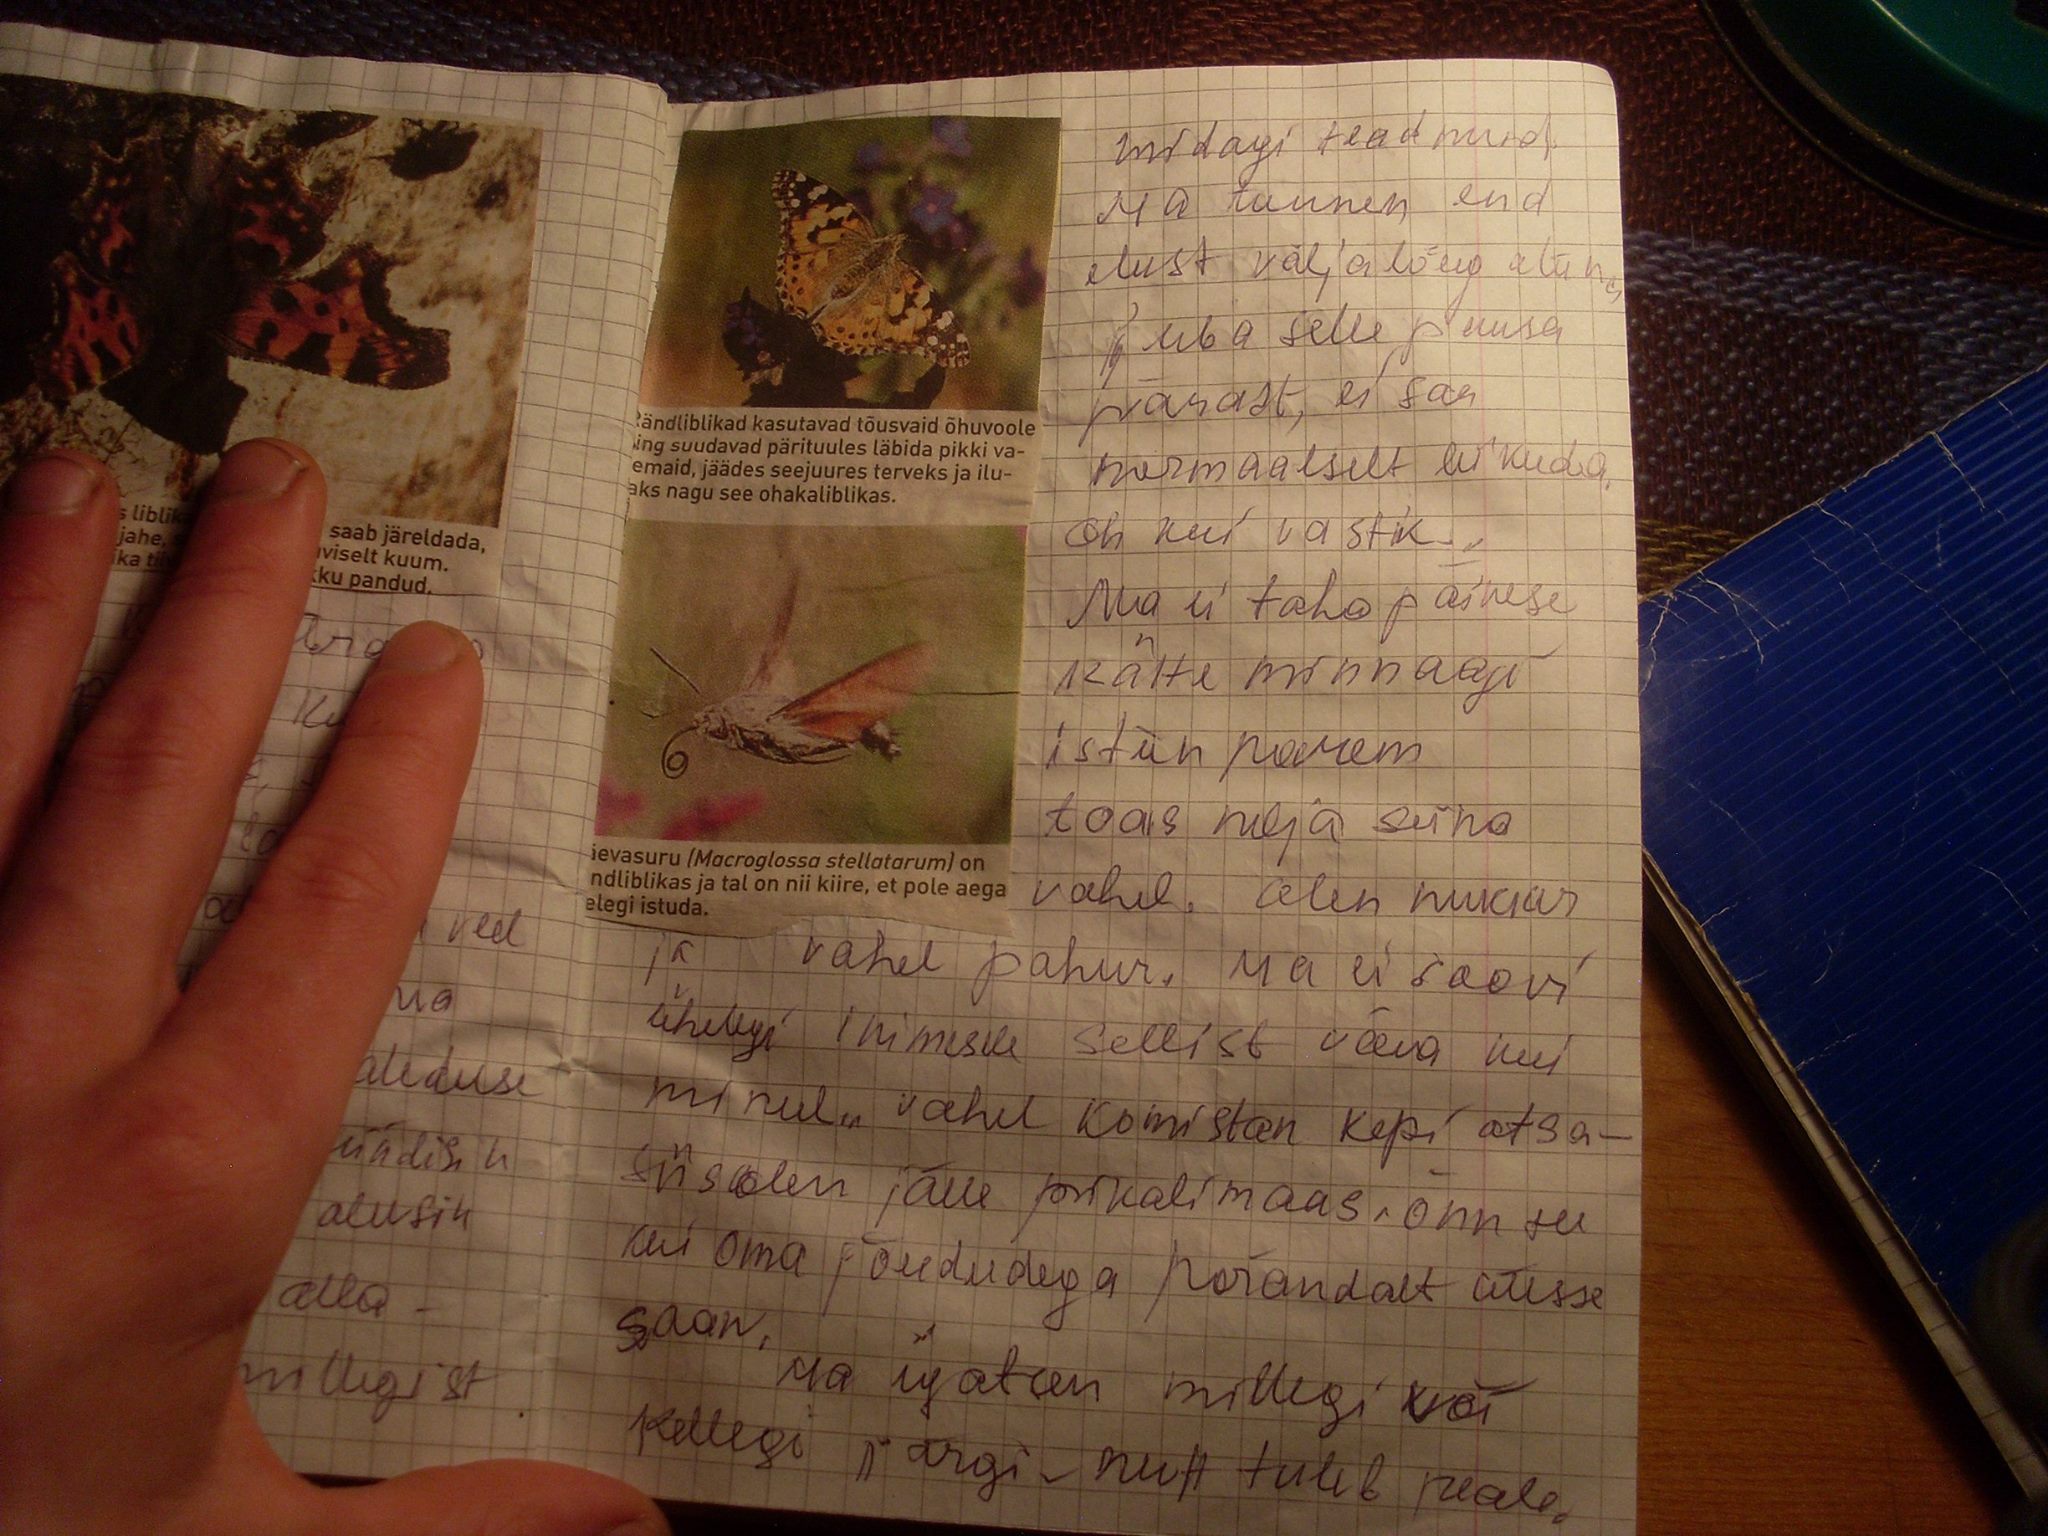 s liblik
saab järeldada,
jahe, s
uviselt kuum.
ika tii
kku pandud.
ved
ma
aleduse
sündisin
alusin
alla -
millegist
Rändliblikad kasutavad tõusvaid õhuvoole
ning suudavad pärituules läbida pikki va-
emaid, jäädes seejuures terveks ja ilu-
aks nagu see ohakaliblikas.
äevasuru (Macroglossa stellatarum) on
ndliblikas ja tal on nii kiire, et pole aega
elegi istuda.
midagi teadnud.
Ma tunnen end
elust väljalõig
juba selle puusa
pärast, ei saa
normaalselt liikuda.
oh kui vastik...
Ma ei taha päikese
kätte minnagi
istün parem
toas nelja seina
vahel. olen nukker
ja vahel pahur. Ma ei soovi
ühelegi inimesele sellist vaeva kui
minul.. vahel komistan kepi otsa -
siis olen jälle pikalimaas. õnn see
kui oma jõududega põrandalt ülesse
saan.
Ma igatsen millegi või
kellegi järgi - nutt tuleb peale.